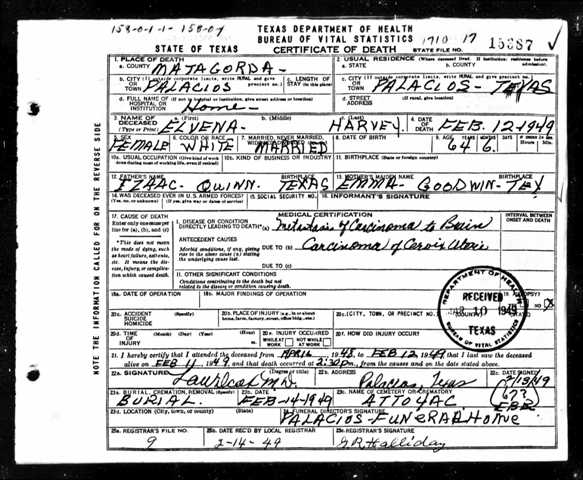 153-0-1-1-153-04
TEXAS DEPARTMENT OF HEALTH
BUREAU OF VITAL STATISTICS
STATE OF TEXAS
CERTIFICATE OF DEATH
STATE FILE NO.
1710 17
15387
1. PLACE OF DEATH
a. COUNTY MATAGORDA-
2. USUAL RESIDENCE (Where deceased lived. If institution: residence before admission)
a. STATE
b. COUNTY
b. CITY (If outside corporate limits, write RURAL and give precinct no.) OR TOWN PALACIOS
c. LENGTH OF STAY (in this place)
c. CITY (If outside corporate limits, write RURAL and give precinct no.) OR TOWN PALACIOS- TEXAS
d. FULL NAME OF (If not in hospital or institution, give street address or location) HOSPITAL OR INSTITUTION Home-
d. STREET ADDRESS (If rural, give location)
3. NAME OF DECEASED (Type or Print)
a. (First) ELVENA-
b. (Middle)
c. (Last) HARVEY
4. DATE OF DEATH FEB. 12-1949
5. SEX FEMALE
6. COLOR OR RACE WHITE
7. MARRIED, NEVER MARRIED, MARRIED
8. DATE OF BIRTH
9. AGE 64 6
10a. USUAL OCCUPATION (Give kind of work done during most of working life, even if retired)
10b. KIND OF BUSINESS OR INDUSTRY
11. BIRTHPLACE (State or foreign country)
12. FATHER'S NAME BIRTHPLACE
IZAAC- QUINN. TEXAS
13. MOTHER'S MAIDEN NAME BIRTHPLACE
EMMA- GOODWIN- TEX
14. WAS DECEASED EVER IN U.S. ARMED FORCES? (Yes, no, or unknown) (If yes, give war or dates of service)
15. SOCIAL SECURITY NO.
16. INFORMANT'S SIGNATURE
17. CAUSE OF DEATH
Enter only one cause per line for (a), (b), and (c)
MEDICAL CERTIFICATION
INTERVAL BETWEEN ONSET AND DEATH
I. DISEASE OR CONDITION DIRECTLY LEADING TO DEATH* (a) Metastasis of Carcinoma to Brain
*This does not mean the mode of dying, such as heart failure, asthenia, etc. It means the disease, injury, or complication which caused death.
ANTECEDENT CAUSES
Morbid conditions, if any, giving rise to the above cause (a) stating the underlying cause last.
DUE TO (b) Carcinoma of Cervix Uteri
DUE TO (c)
II. OTHER SIGNIFICANT CONDITIONS
Conditions contributing to the death but not related to the disease or condition causing death.
18a. DATE OF OPERATION
18b. MAJOR FINDINGS OF OPERATION
19. AUTOPSY?
20a. ACCIDENT SUICIDE HOMICIDE (Specify)
20b. PLACE OF INJURY (e.g., in or about home, farm, factory, street, office bldg., etc.)
20c. (CITY, TOWN, OR PRECINCT NO.) (COUNTY)
20d. TIME OF INJURY (Month) (Day) (Year) (Hour)
20e. INJURY OCCURRED WHILE AT WORK NOT WHILE AT WORK
20f. HOW DID INJURY OCCUR?
DEPARTMENT OF HEALTH
RECEIVED
10 1949
TEXAS
BUREAU OF VITAL STATISTICS
21. I hereby certify that I attended the deceased from APRIL 1948, to FEB 12, 1949 that I last saw the deceased
alive on FEB 11 1949, and that death occurred at 2:30 pm., from the causes and on the date stated above.
22a. SIGNATURE (Degree or title) M.D.
22b. ADDRESS Palacios, Texas
22c. DATE SIGNED 2/13/49
23a. BURIAL, CREMATION, REMOVAL (Specify) BURIAL.
23b. DATE FEB-14-1949
23c. NAME OF CEMETERY OR CREMATORY ATTOYAC
23d. LOCATION (City, town, or county) (State)
24. FUNERAL DIRECTOR'S SIGNATURE PALACIOS-FUNERAL HOME
25a. REGISTRAR'S FILE NO. 9
25b. DATE REC'D BY LOCAL REGISTRAR 2-14-49
25c. REGISTRAR'S SIGNATURE G.R. Halliday
NOTE THE INFORMATION CALLED FOR ON THE REVERSE SIDE